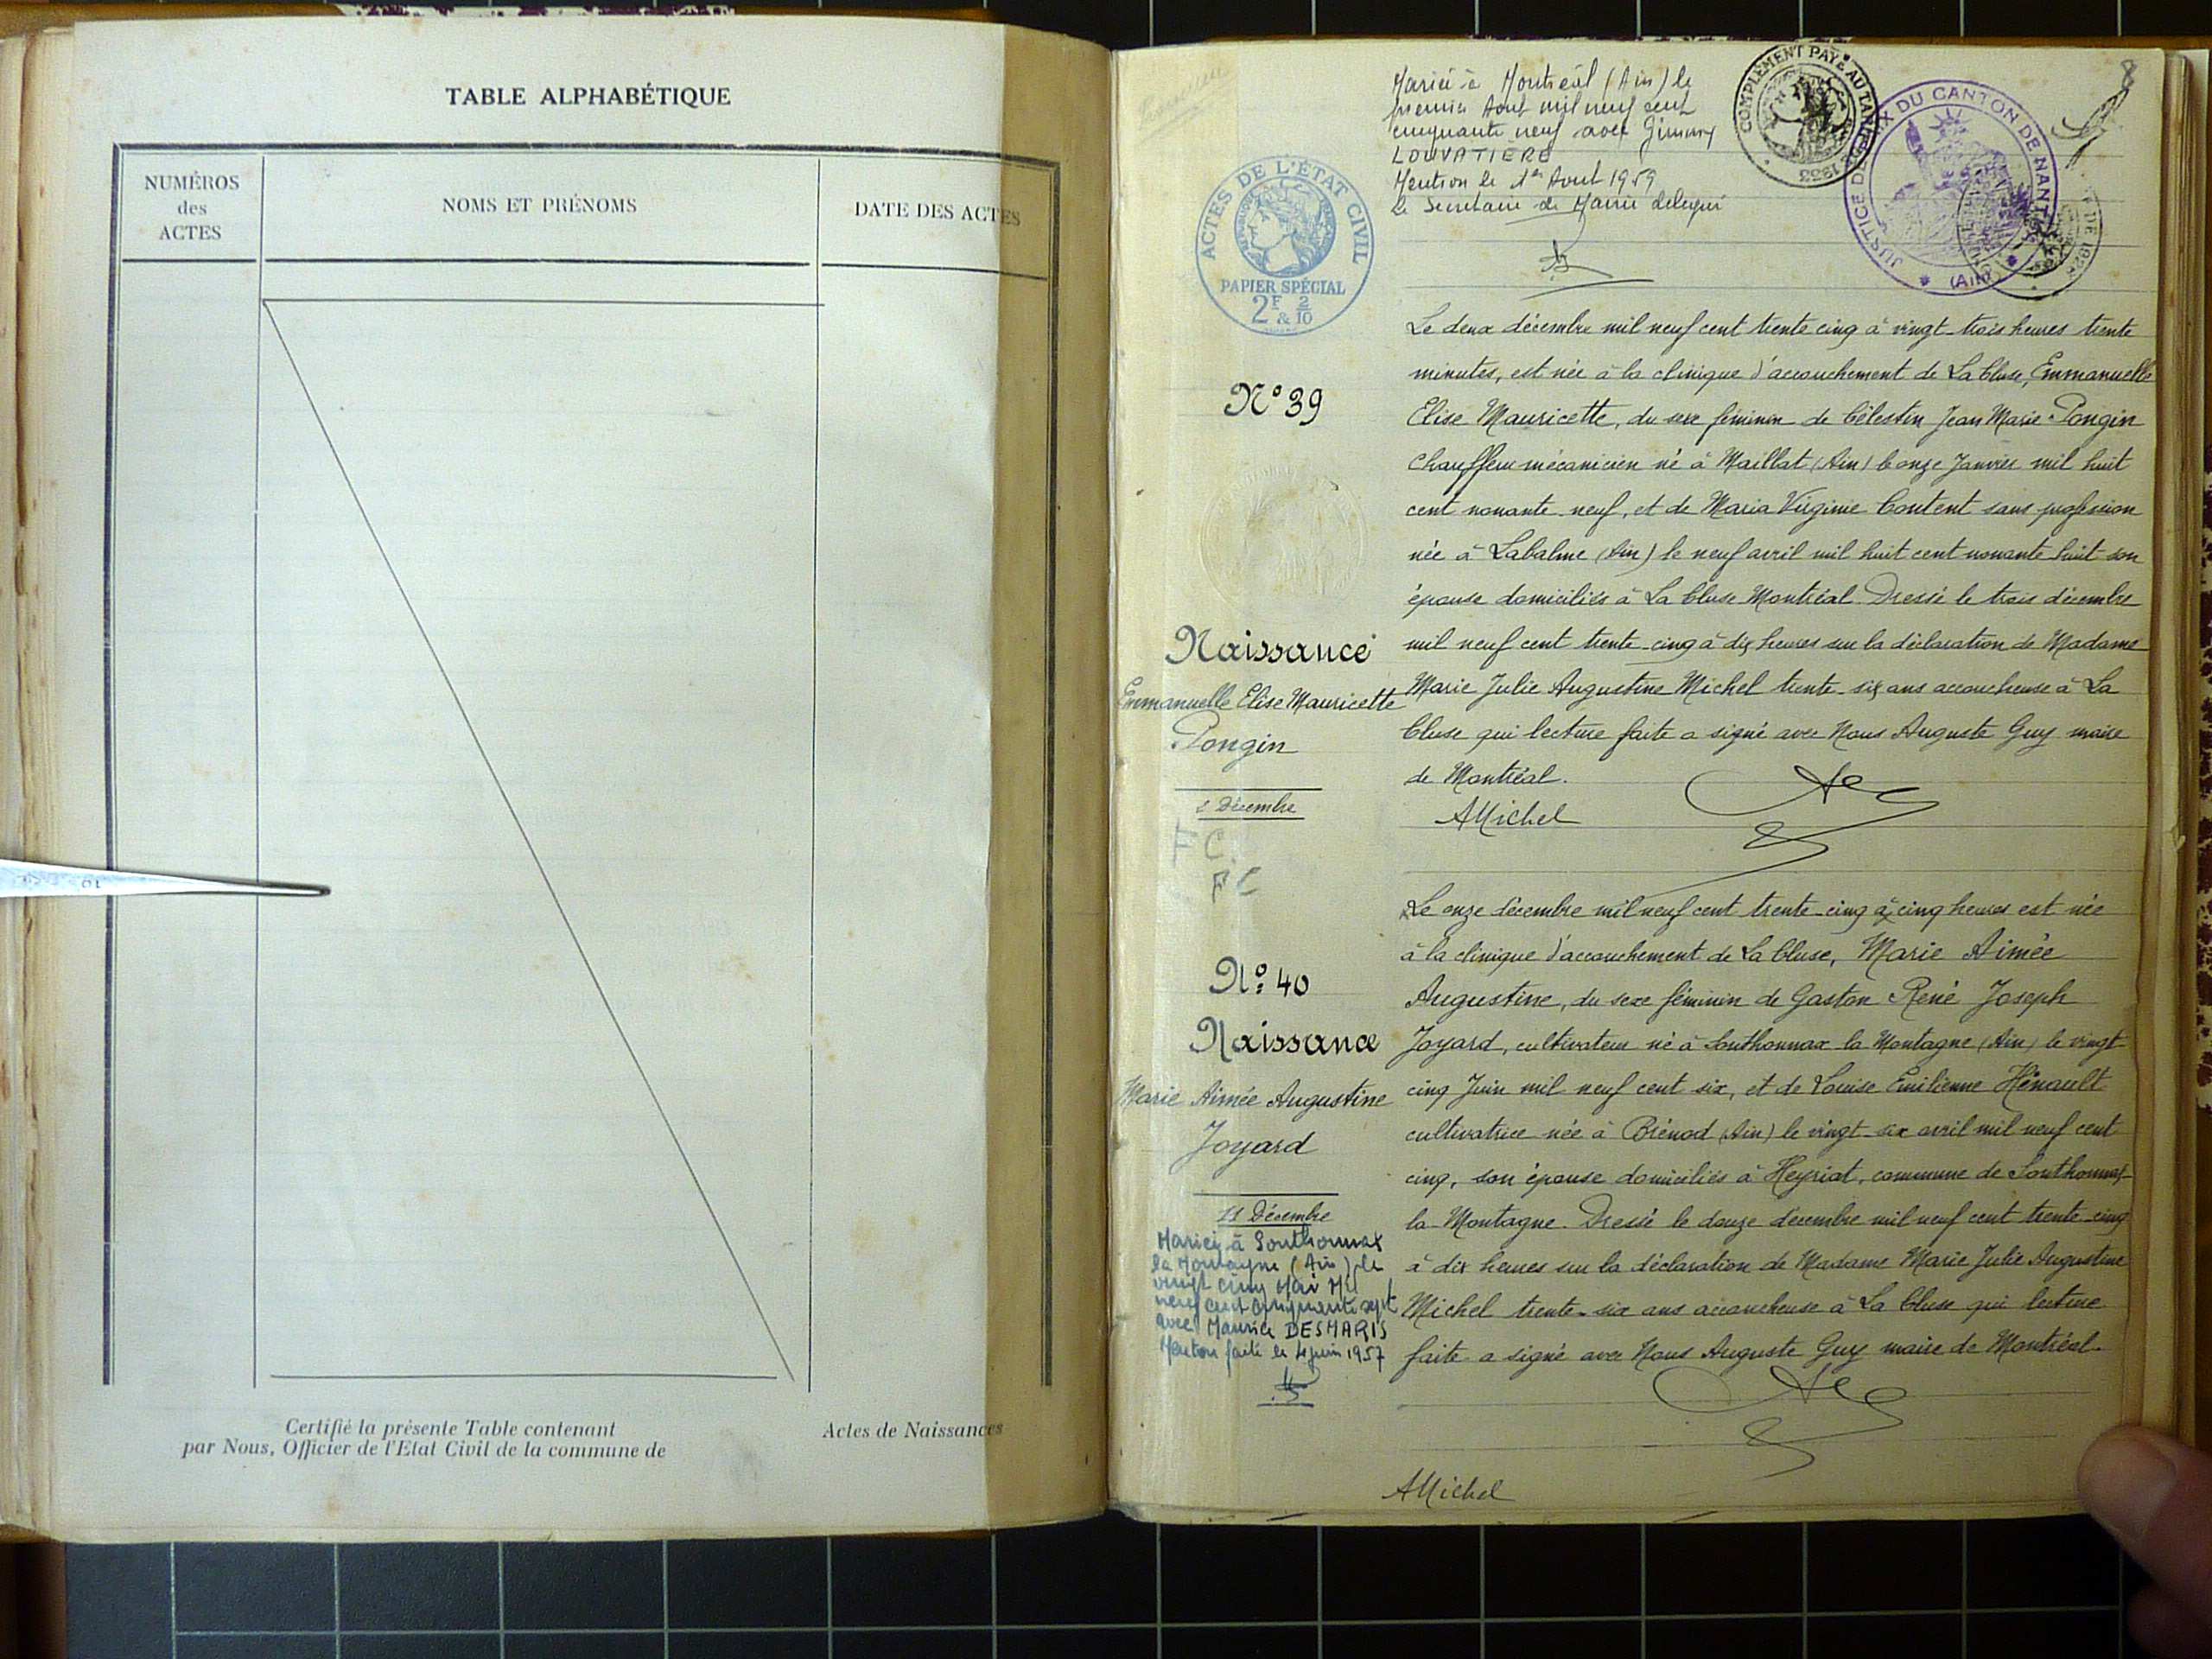 TABLE ALPHABÉTIQUE
NUMÉROS
des
ACTES
NOMS ET PRÉNOMS
DATE DES ACTES
Certifié la présente Table contenant
Actes de Naissances
par Nous, Officier de l'Etat Civil de la commune de
Mariée à Montréal (Ain) le
premier Aout mil neuf cent
cinquante neuf avec
LOUVATIERE
Mention le 1er Aout 1959
Le Secretaire de Mairie delegué
COMPLÉMENT PAYÉ AU TARIF DE 1933
JUSTICE DE PAIX DU CANTON DE NANTUA
(Ain)
ACTES DE L'ÉTAT CIVIL
PAPIER SPÉCIAL
2F & 2/10
N° 39
Naissance
Emmanuelle Elise Mauricette
Pongin
2 Décembre
F C
F C
Le deux décembre mil neuf cent trente cinq à vingt-trois heures trente
minutes, est née à la clinique d'accouchement de La Cluse, Emmanuelle
Elise Mauricette, du sexe féminin de Célestin Jean Marie Pongin
chauffeur mécanicien né à Maillat (Ain) le onze Janvier mil huit
cent nonante-neuf, et de Maria Virginie Content sans profession
née à Labalme (Ain) le neuf avril mil huit cent nonante huit son
épouse domiciliés à La Cluse Montréal. Dressé le trois décembre
mil neuf cent trente-cinq à dix heures sur la déclaration de Madame
Marie Julie Augustine Michel trente-six ans accoucheuse à La
Cluse qui lecture faite a signé avec Nous Auguste Guy maire
de Montréal.
AMichel
N° 40
Naissance
Marie Aimée Augustine
Joyard
11 Décembre
Mariée à Sonthonnax
la Montagne (Ain) le
vingt cinq Mai Mil
neuf cent cinquante sept
avec Maurice DESMARIS
Mention faite le 4 juin 1957
Le onze décembre mil neuf cent trente-cinq à cinq heures est née
à la clinique d'accouchement de La Cluse, Marie Aimée
Augustine, du sexe féminin de Gaston René Joseph
Joyard, cultivateur né à Sonthonnax la Montagne (Ain) le vingt
cinq Juin mil neuf cent six, et de Louise Emilienne Hénault
cultivatrice née à Brénod (Ain) le vingt-six avril mil neuf cent
cinq, son épouse domiciliés à Heyriat, commune de Sonthonnax-
la-Montagne. Dressé le douze décembre mil neuf cent trente-cinq
à dix heures sur la déclaration de Madame Marie Julie Augustine
Michel trente-six ans accoucheuse à La Cluse qui lecture
faite a signé avec Nous Auguste Guy maire de Montréal.
AMichel